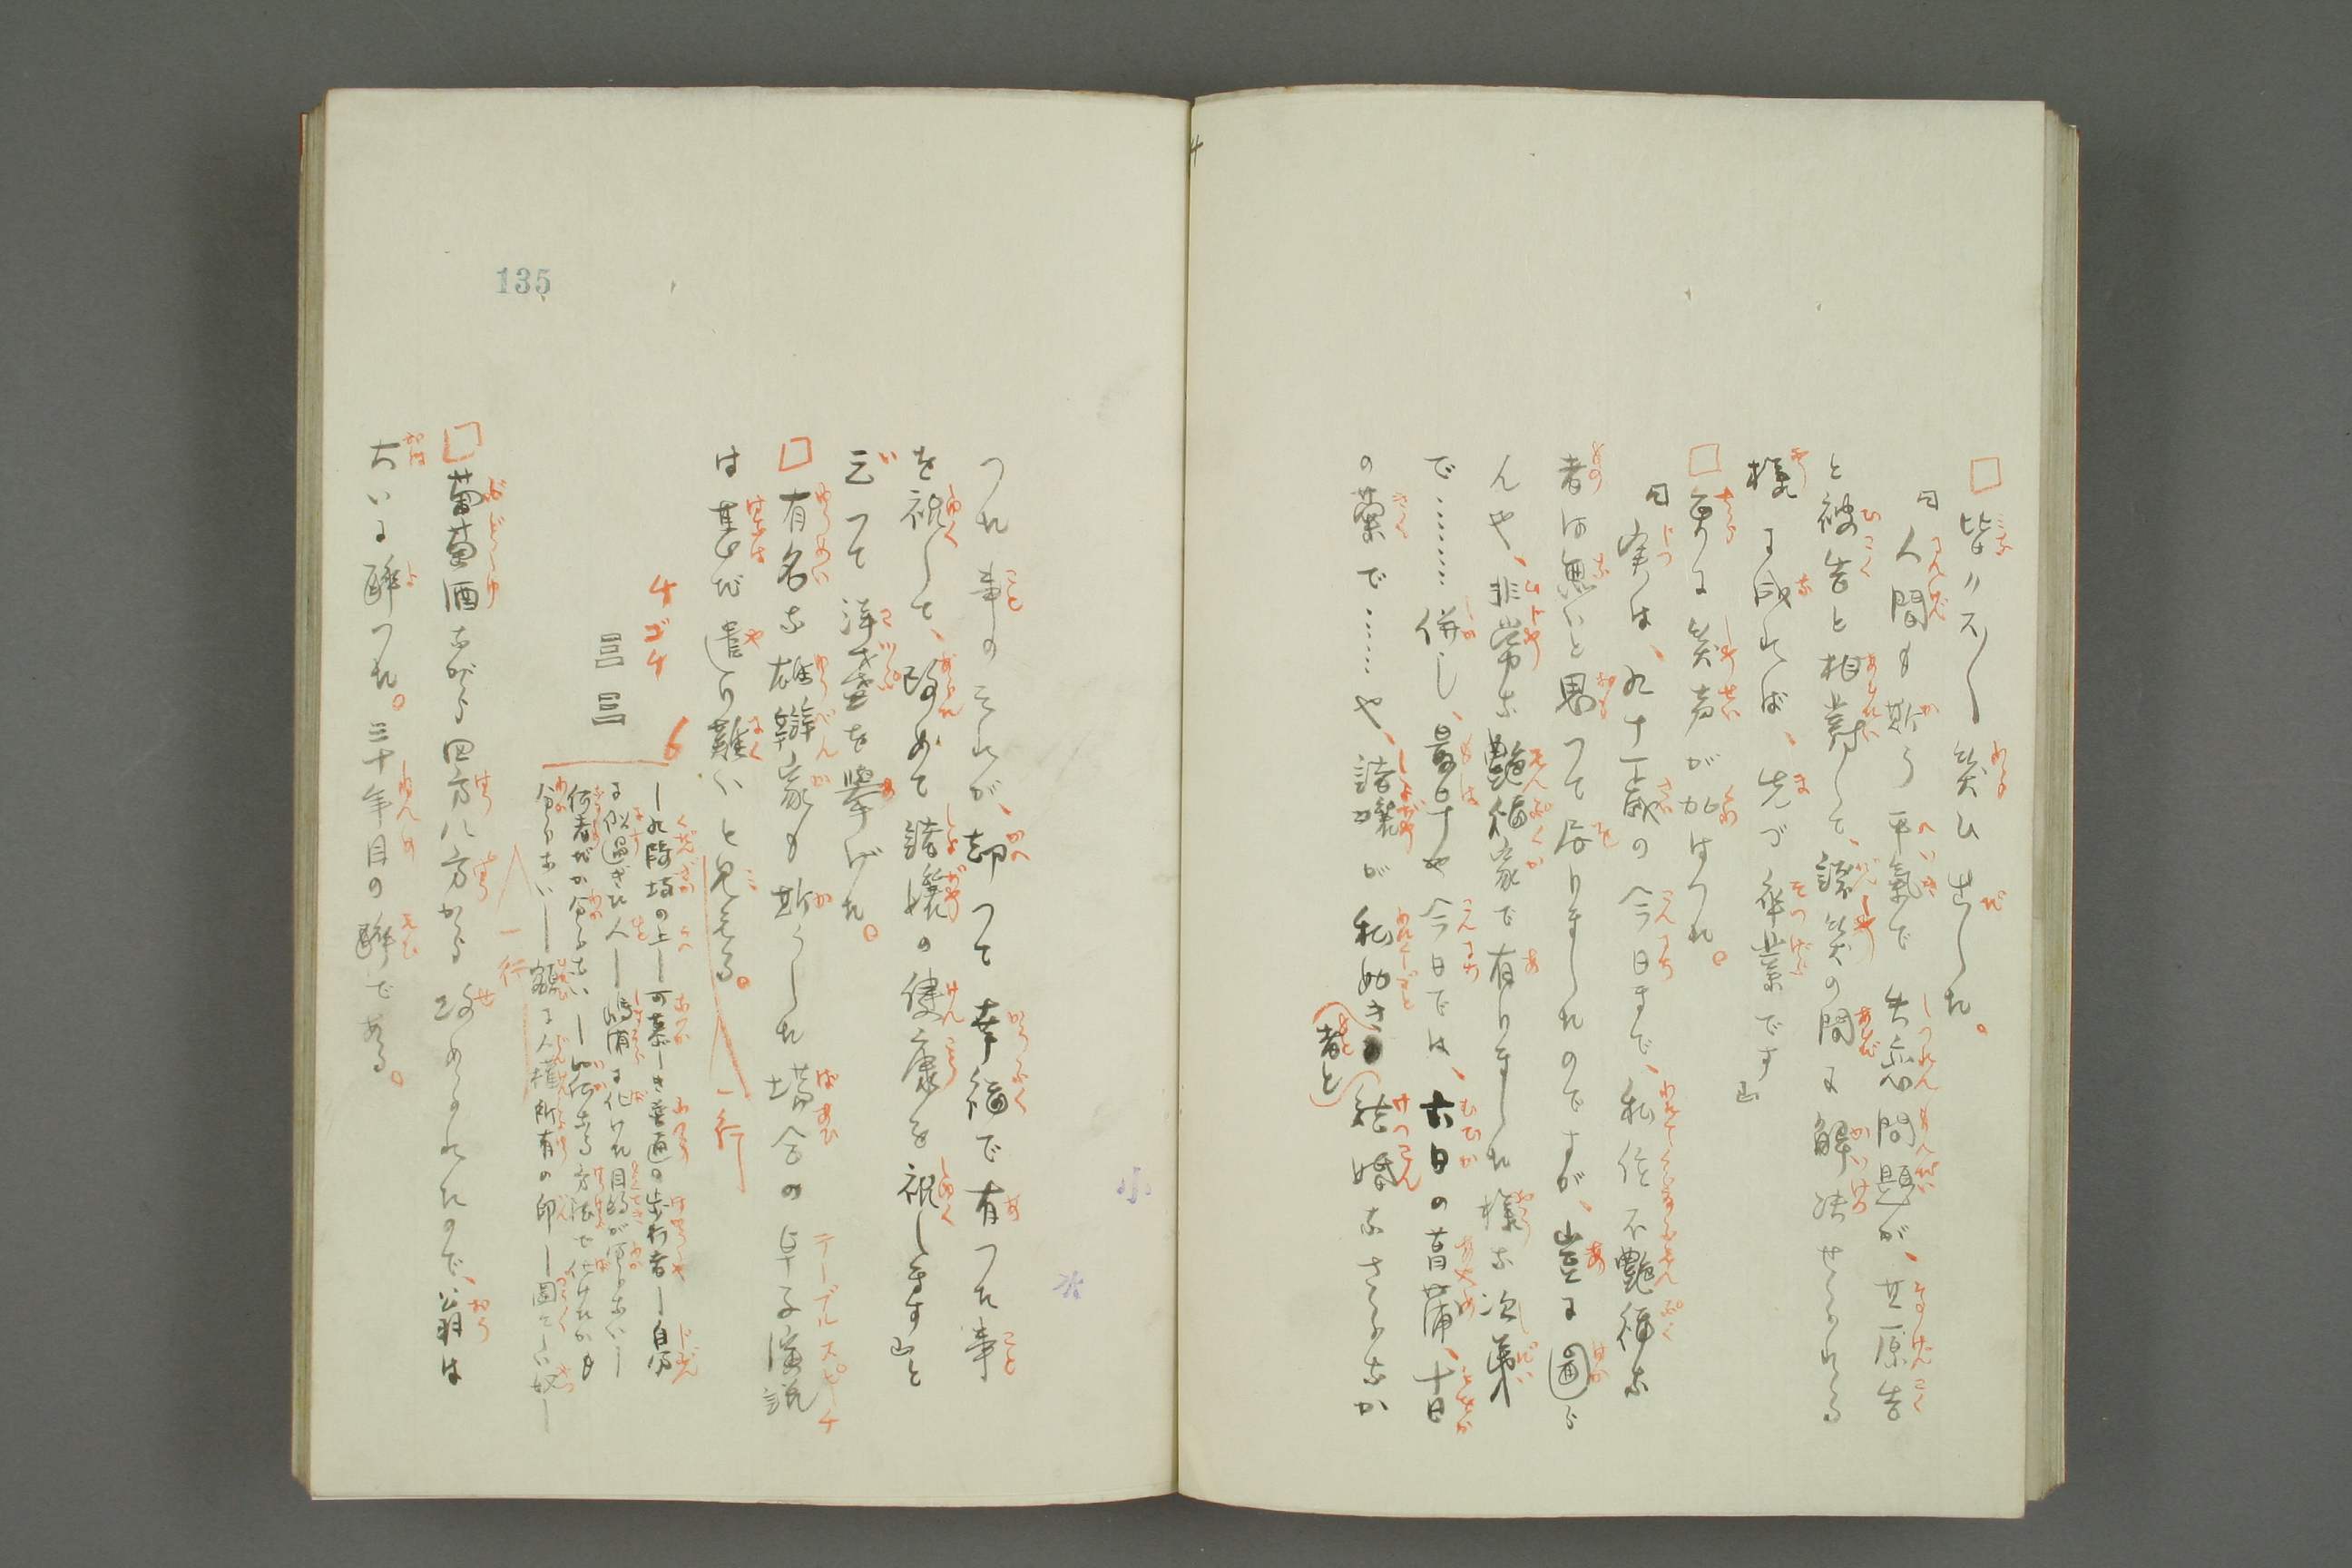 皆々ズーーと笑ひ出した。
「人間も斯う平氣で失恋問題が、其原告
と被告と相對して、談笑の間に解决せられる
様に成れば、先づ卒業です」
更に笑声が加はつた。
「実は、九十一歳の今日まで、私位不艶福な
者は無いと思つて居りましたのですが、豈に図ら
んや、非常な艶福家で有りました様な次第
で………併し、最早や今日では、六日の菖蒲、十日
の菊で……や、諸嬢が私如き者と結婚なさらなか
つた事のそれが、却つて幸福で有つた事
を祝して、改めて諸嬢の健康を祝します」と
云つて洋盃を擧げた。
有名な雄辯家も斯うした場合の卓子演説
は甚だ遣り難いと見える。
一行
4ゴチ
三三
6
―九段坂の上―可慕しき普通の歩行者―自分
に似過ぎた人―嶋浦に化けた目的が分らない―
何者だか分らない―如何なる方法で化けたかも
分らない―額に人権所有の印―図々しい奴―
一行
葡萄酒ながら四方八方から攻められたので、翁は
大いに酔つた。三十年目の酔である。
135
小